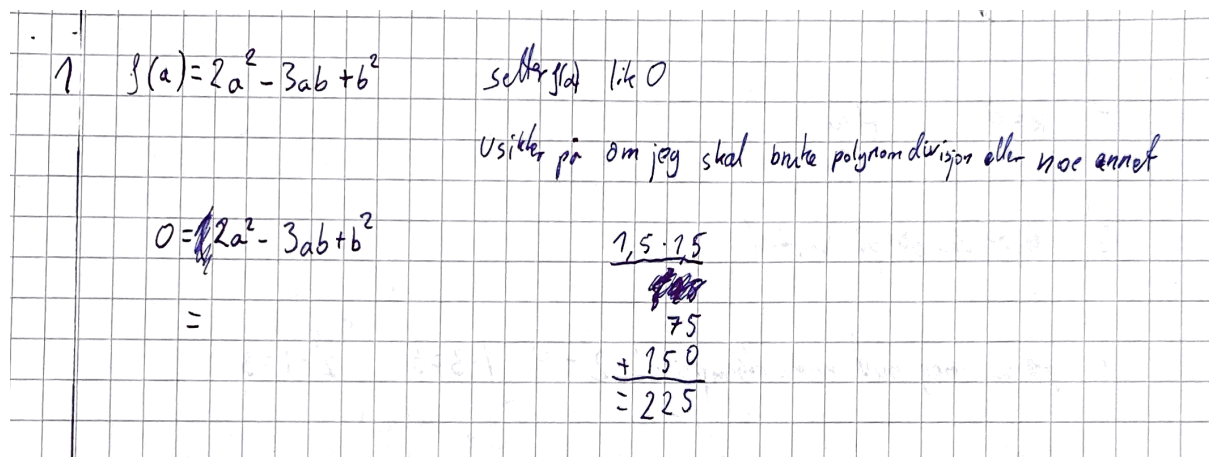 1 f(a) = 2a² - 3ab + b² setter f(a) lik 0
Usikker på om jeg skal bruke polynomdivisjon eller noe annet
0 = 2a² - 3ab + b²
1,5 · 1,5
=
75
+ 150
= 225